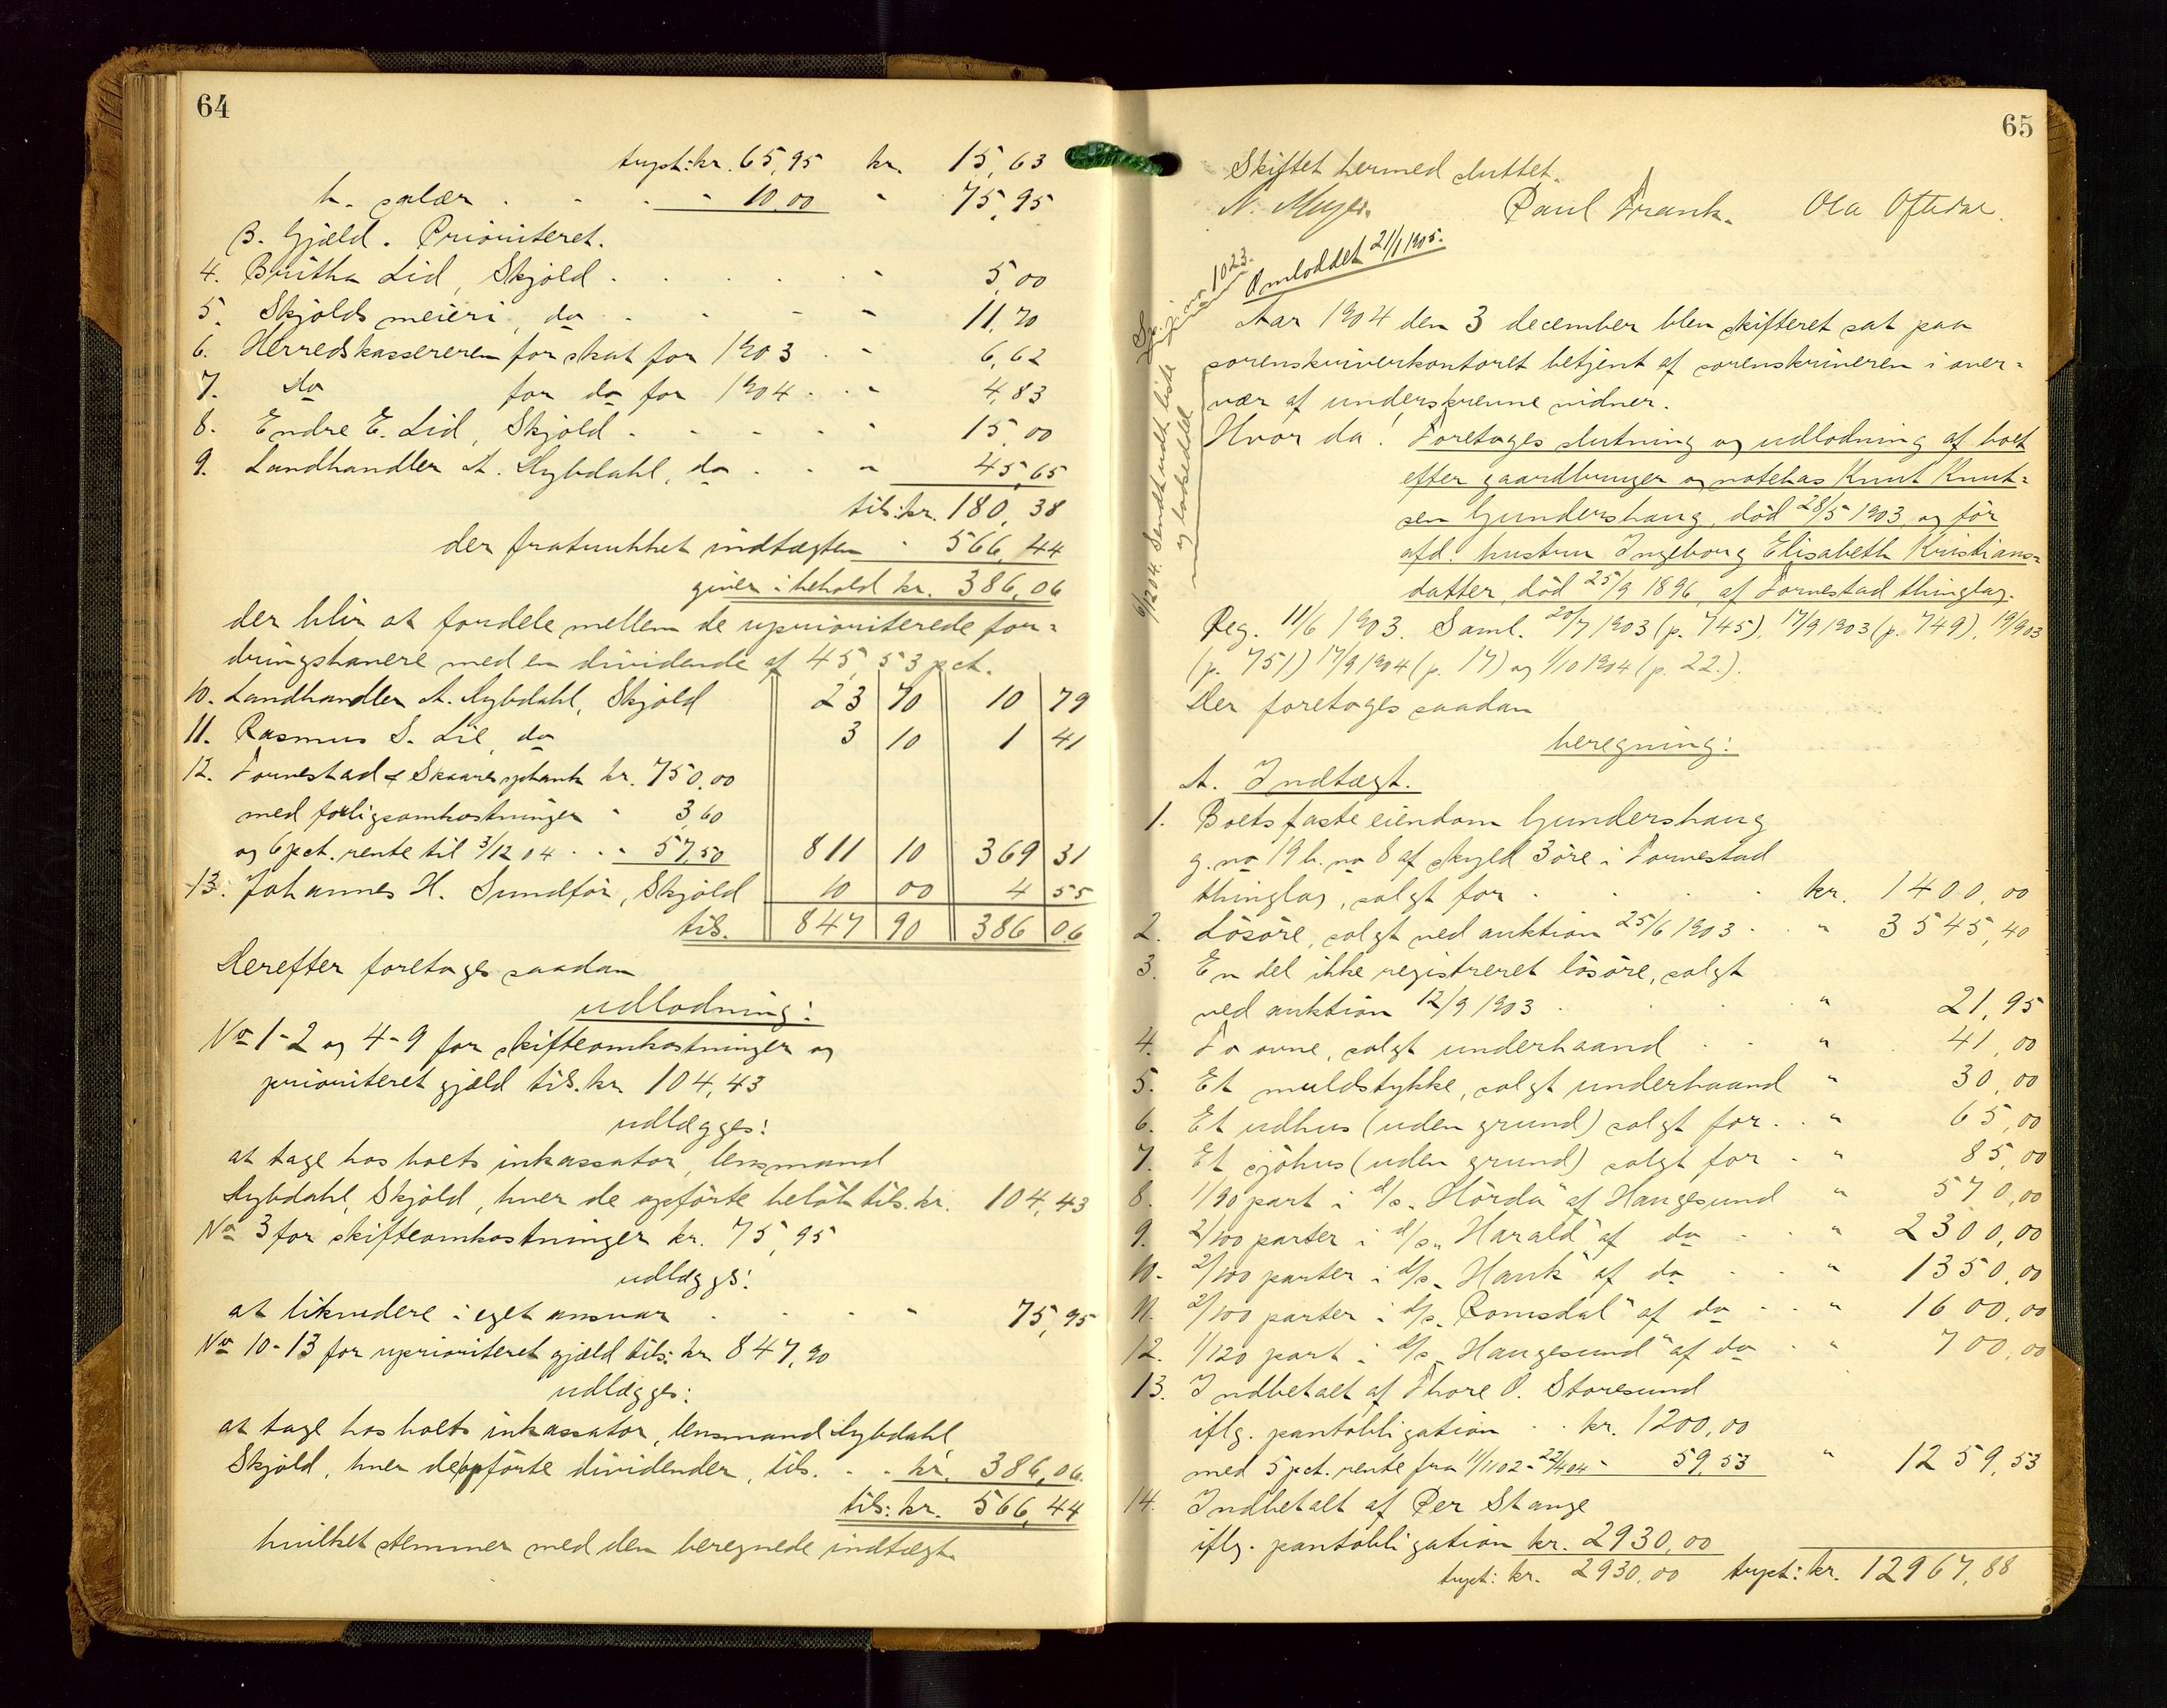 64
trspt: kr. 65,95 kr. 15,63
h. salær . . . " 10.00 " 75,95
B. Gjæld. Prioriteret.
4. Britha Lid, Skjold . . . . " 5,00
5. Skjolds meieri, do . . . . " 11,70
6. Herredskassereren for skat for 1903 . . " 6,62
7. Do for do for 1904 . . " 4,83
8. Endre E. Lid, Skjold . . . . " 15,00
9. Landhandler A. Nybdahl, do . . " 45,65
tils: kr. 180,38
der fratrukket indtægten " 566,44
giver i behold kr. 386,06
der blir at fordele mellem de uprioriterede for-
dringshavere med en dividende af 45,53 pct.
10. Landhandler A. Nybdahl, Skjold 23 70 10 79
11. Rasmus S. Lie, do 3 10 1 41
12. Torvestad & Skaare spbank kr. 750,00
med forligsomkostninger " 3,60
og 6 pct. rente til 3/12 04 . . " 57,50 811 10 369 31
13. Johannes H. Sundför, Skjold 10 00 4 55
tils. 847 90 386 06
Derefter foretoges saadan
udlodning:
No 1-2 og 4-9 for skifteomkostninger og
prioriteret gjæld tils. kr. 104,43
udlægges:
at tage hos boets inkassator, lensmand
Nybdahl, Skjold, hver de opförte belöb tils. kr. 104,43
No 3 for skifteomkostninger kr. 75,95
udlægges:
at likvidere i eget ansvar . . . " 75,95
No 10-13 for uprioriteret gjæld tils: kr. 847,90
udlægges:
at tage hos boets inkassator, lensmand Nybdahl,
Skjold, hver de opförte dividender, tils. . . kr. 386,06
tils: kr. 566,44
hvilket stemmer med den beregnede indtægt.
65
Skiftet hermed sluttet.
N. Meyer. Paul Frank. Ola Oftedal.
Omloddet 21/1 1905.
no 1023.
6/12 04. Sendt udl. liste
og lodseddel
Aar 1904 den 3 december blev skifteret sat paa
sorenskriverkontoret betjent af sorenskriveren i over-
vær af underskrevne vidner.
Hvor da: Foretoges slutning og udlodning af boet
efter gaardbruger og notebas Knut Knut-
sen Gundershaug, död 28/5 1903, og för
afd. hustru Ingeborg Elisabeth Kristians-
datter, död 25/9 1896, af Torvestad thinglag.
Reg. 11/6 1903. Saml. 20/7 1903 (p. 745), 17/9 1903 (p. 749), 19/9 03
(p. 751) 17/9 1904 (p. 17) og 1/10 1904 (p. 22.).
Der foretoges saadan
beregning:
A. Indtægt.
1. Boets faste eiendom Gundershaug
g. no 19 b. no 8 af skyld 3 öre i Torvestad
thinglag, solgt for . . . . kr. 1400,00
2. Lösöre, solgt ved auktion 25/6 1903 . . " 3545,40
3. En del ikke registreret lösöre, solgt
ved auktion 12/9 1903 . . . . " 21,95
4. To ovne, solgt underhaand . . " 41,00
5. Et muldstykke, solgt underhaand " 30,00
6. Et udhus (uden grund) solgt for . . " 65,00
7. Et sjöhus (uden grund) solgt for . " 85,00
8. 1/90 part i d/s. "Hörda" af Haugesund " 570,00
9. 2/100 parter i d/s. "Harald" af do . . " 2300,00
10. 2/100 parter i d/s. "Hauk" af do . . " 1350,00
11. 2/100 parter i d/s. "Romsdal" af do . . " 1600,00
12. 1/120 part i d/s. "Haugesund" af do . " 700,00
13. Indbetalt af Thore O. Storesund
iflg. pantobligation . . kr. 1200,00
med 5 pct. rente fra 11/11 02 - 22/4 04 - 59,53 " 1259,53
14. Indbetalt af Per Stange
iflg. pantobligation kr. 2930,00
trspt: kr. 2930,00 trspt: kr. 12967,88